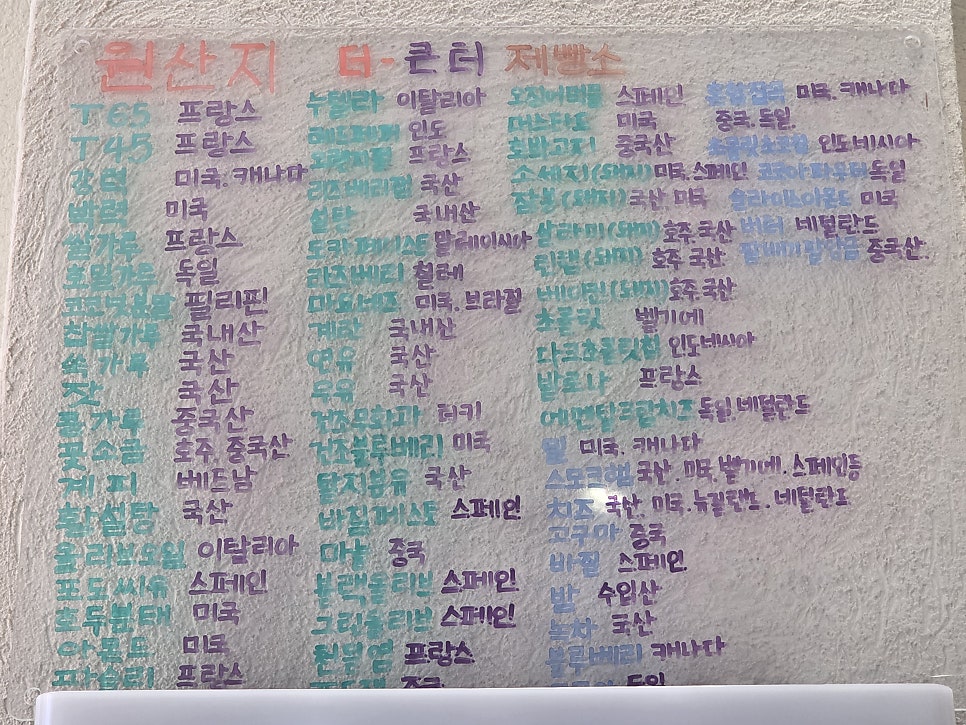 원산지 더-큰터 제빵소
T65 프랑스
T45 프랑스
강력 미국.캐나다
박력 미국
쌀가루 프랑스
호밀가루 독일
코코넛분말 필리핀
찹쌀가루 국내산
쑥가루 국산
잣 국산
콩가루 중국산
꽃소금 호주.중국산
계피 베트남
황설탕 국산
올리브오일 이탈리아
포도씨유 스페인
호두분태 미국
아몬드 미국
파슬리 프랑스
누텔라 이탈리아
레드페퍼 인도
프랑스
라즈베리잼 국산
설탕 국내산
모카페이스트 말레이시아
라즈베리 칠레
마요네즈 미국.브라질
계란 국내산
연유 국산
우유 국산
건조무화과 터키
건조블루베리 미국
탈지분유 국산
바질페스토 스페인
마늘 중국
블랙올리브 스페인
그린올리브 스페인
천일염 프랑스
중국
오징어먹물 스페인
머스타드 미국
호박고지 중국산
소세지(돼지) 미국.스페인
잠봉(돼지) 국산 미국
살라미(돼지) 호주.국산
호주.국산
베이컨(돼지) 호주.국산
초콜릿 벨기에
다크초콜릿칩 인도네시아
발로나 프랑스
에멘탈크림치즈 독일.네덜란드
밀 미국.캐나다
스모크햄 국산.미국.벨기에.스페인등
치즈 국산.미국.뉴질랜드.네덜란드
고구마 중국
바질 스페인
밤 수입산
녹차 국산
블루베리 캐나다
독일
혼합잡곡 미국.캐나다
중국.독일.
인도네시아
코코아파우더 독일
슬라이스아몬드 미국
버터 네덜란드
중국산.